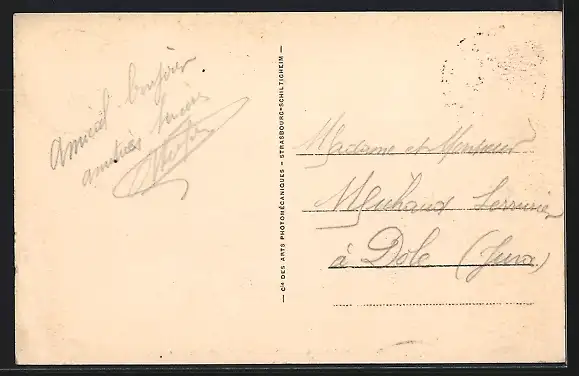 Amical bonjour
amitiés
Cie DES ARTS PHOTOMÉCANIQUES - STRASBOURG-SCHILTIGHEIM
Madame et Monsieur
Michaud Serrurier
à Dôle (Jura)